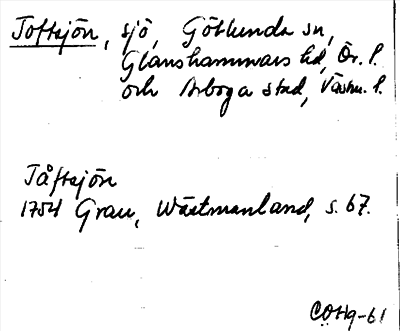 Toftsjön, sjö, Götlunda sn,
Glanshammars hd, Ör. l.
och Arboga stad, Västm. l.
Tåftsjön
1754 Grau, Wästmanland, s. 67.
COHq-61